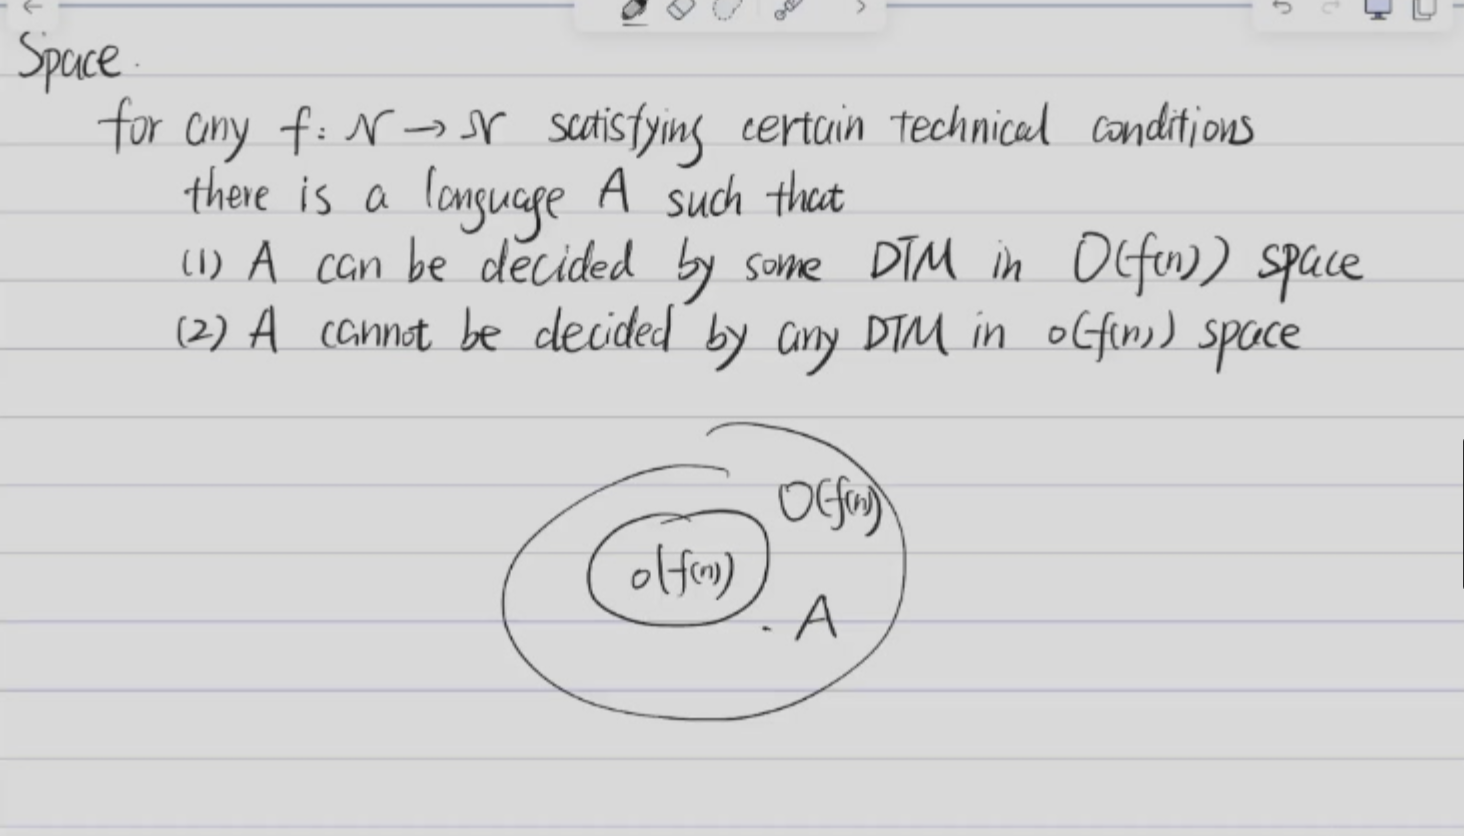 Space.
for any f: N → N satisfying certain technical conditions
there is a language A such that
(1) A can be decided by some DTM in O(f(n)) space
(2) A cannot be decided by any DTM in o(f(n)) space
O(f(n))
o(f(n))
. A